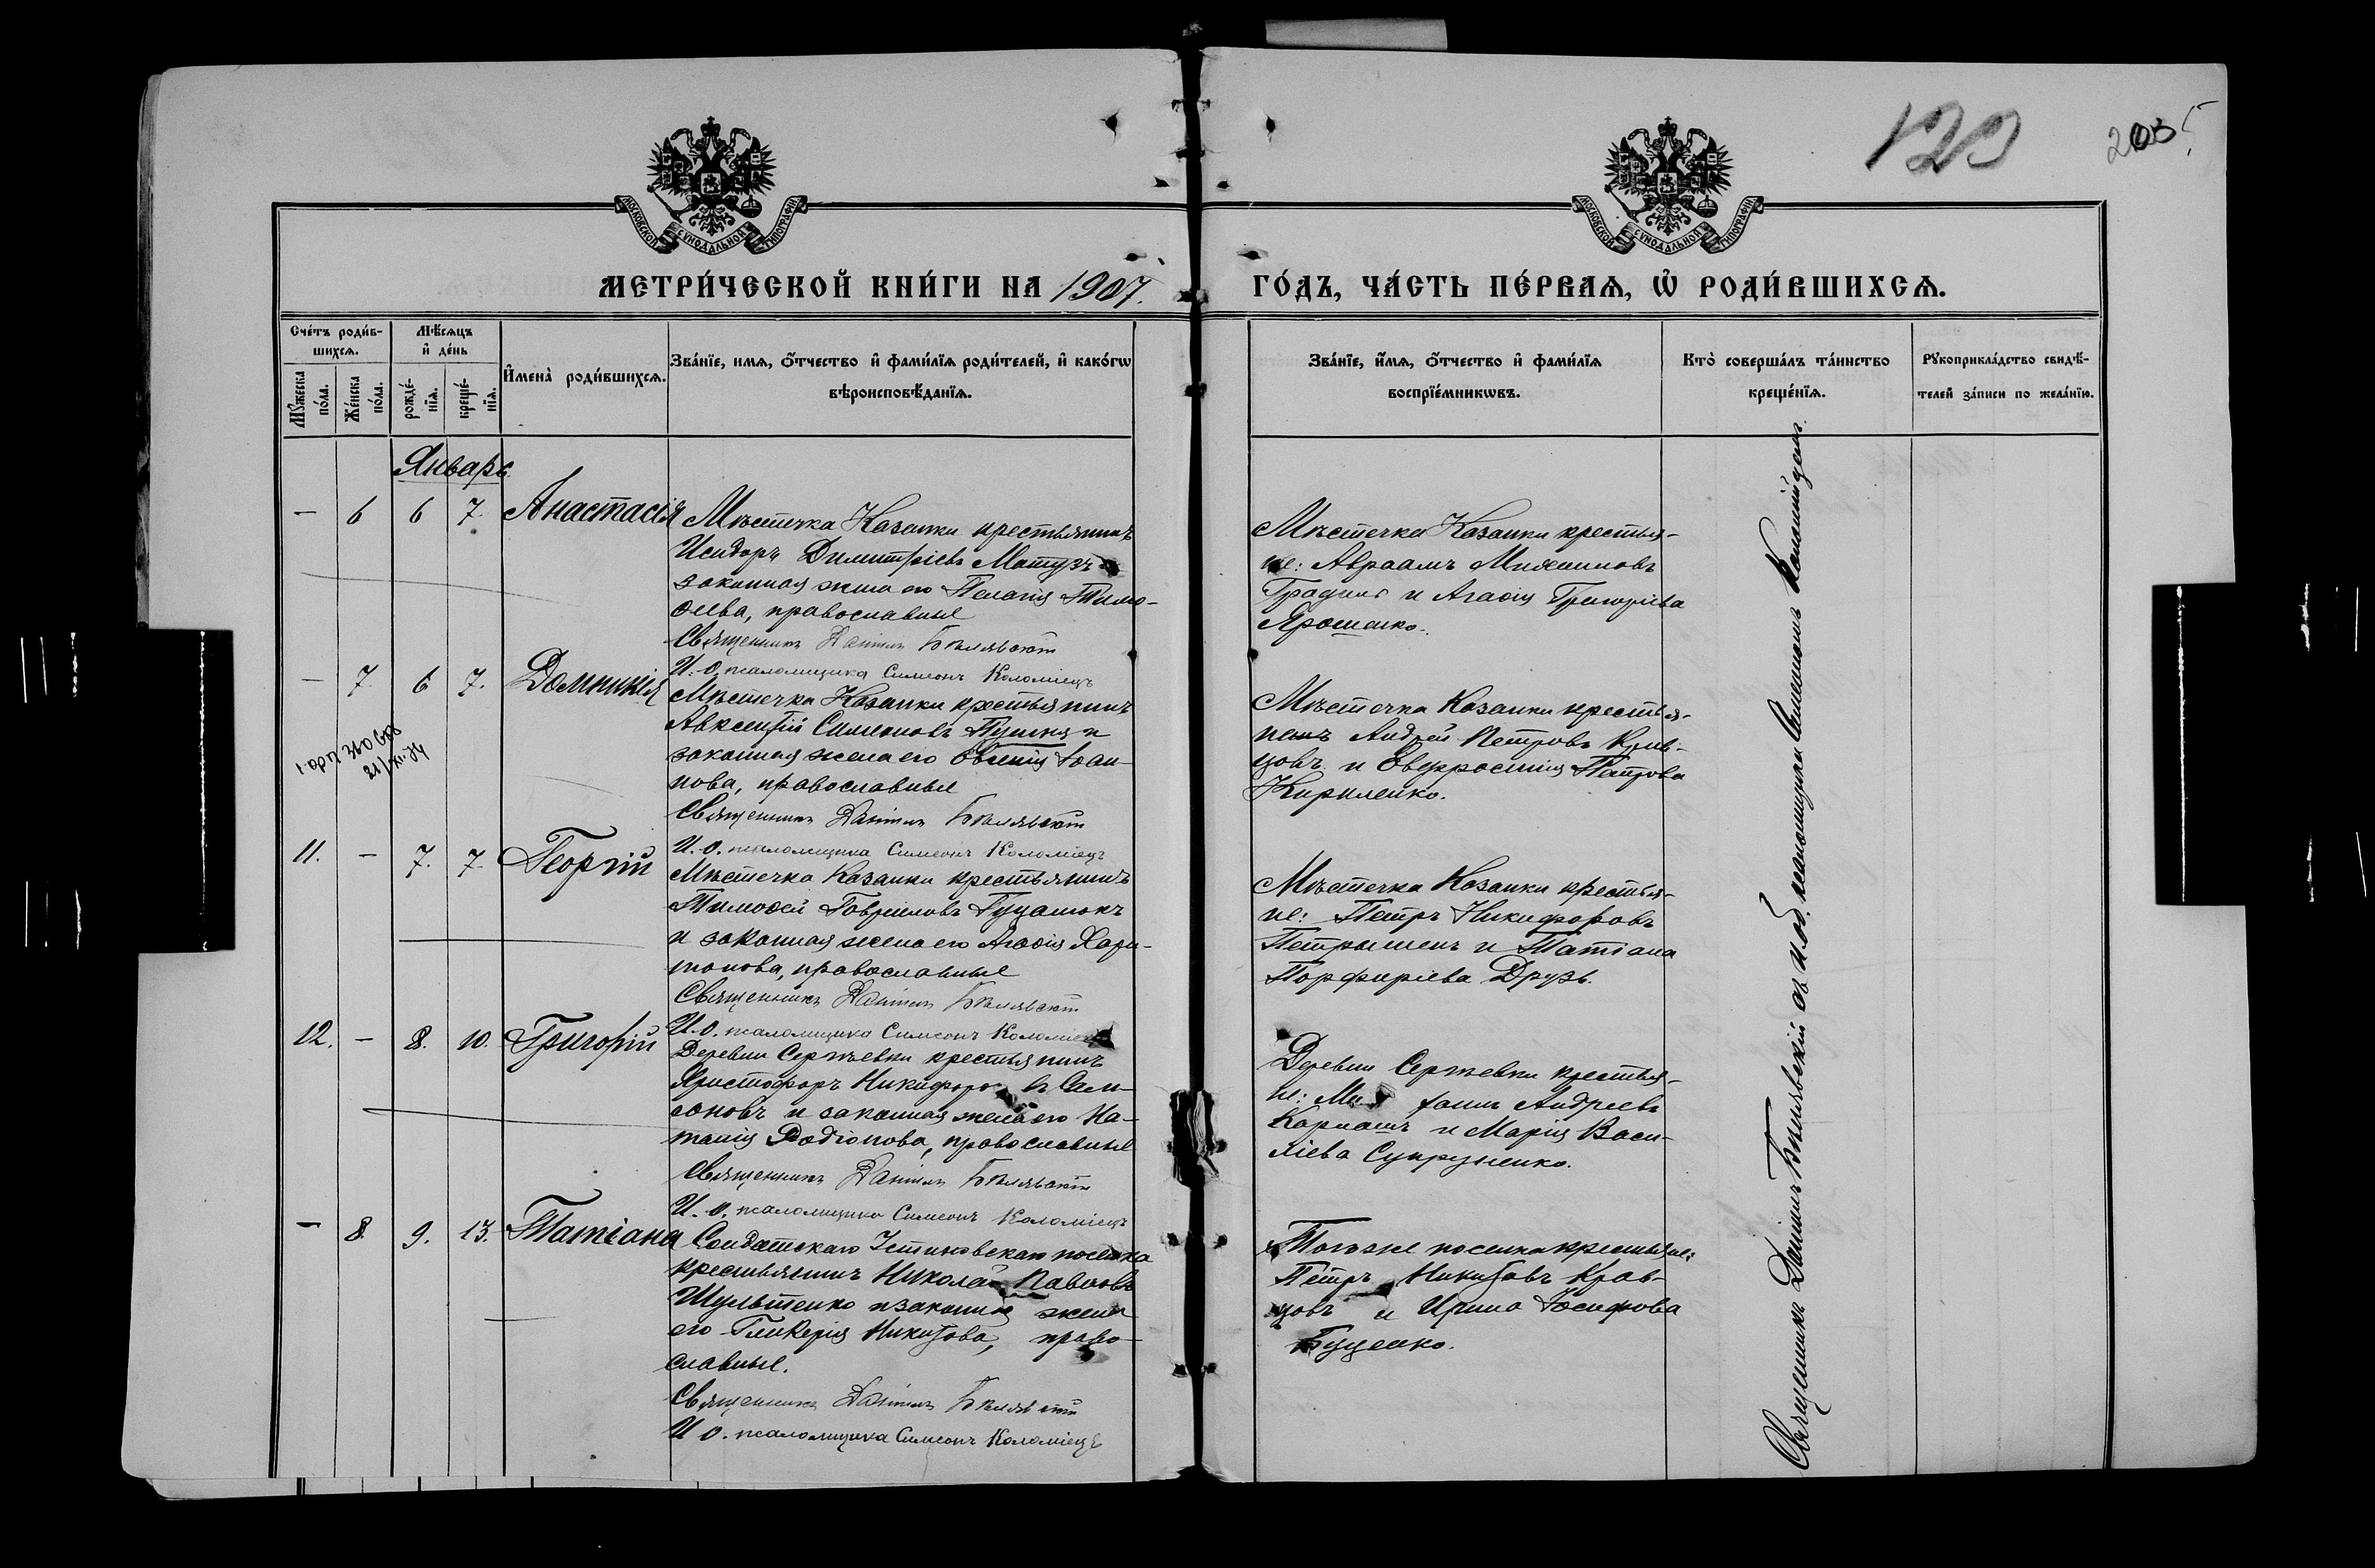 123
205
МОСКОВСКОЙ СУНОДАЛЬНОЙ ТИПОГРАФІИ
МОСКОВСКОЙ СУНОДАЛЬНОЙ ТИПОГРАФІИ
МЕТРИ́ЧЕСКОЙ КНИ́ГИ НА 1907. ГО́ДЪ, ЧА́СТЬ ПЕ́РВАѦ, Ѡ҆ РОДИ́ВШИХСѦ.
Сче́тъ роди́в-
шихсѧ.
Мꙋ́жеска
по́ла.
Же́нска
по́ла.
Мѣ́сѧцъ
и҆ де́нь
рожде́-
нїѧ.
креще́-
нїѧ.
И҆мена̀ роди́вшихсѧ.
Зва́нїе, имѧ, ѻ҆́тчество и҆ фами́лїѧ роди́телей, и҆ како́гѡ
вѣроисповѣ́данїѧ.
Зва́нїе, и҆́мѧ, ѻ҆́тчество и҆ фами́лїѧ
воспрїе́мникѡвъ.
Кто̀ соверша́лъ та́инство
креще́нїѧ.
Рꙋкоприкла́дство свидѣ́-
телей за́писи по жела́нїю.
Январь
— 6 6 7. Анастасія
Мѣстечка Казанки крестьянинъ
Исидоръ Димитріевъ Матузъ и
законная жена его Пелагія Тимо-
ѳеева, православные
Священникъ Даніилъ Бѣлявскій
И. О. псаломщика Симеонъ Коломіецъ
Мѣстечка Казанки крестья-
не: Авраамъ
и Агаѳія Григоріева
Ярошенко.
— 7. 6 7. Домникія
Мѣстечка Казанки крестьянинъ
Авксентій Симеоновъ и
законная жена его Евгенія Іоан-
нова, православные
Священникъ Даніилъ Бѣлявскій
И. О. псаломщика Симеонъ Коломіецъ
Мѣстечка Казанки крестья-
не: Андрей Петровъ Крав-
цовъ и Евфросинія Петрова
Кириленко.
11. — 7. 7. Георгій
Мѣстечка Казанки крестьянинъ
Тимоѳей Гавріиловъ
и законная жена его Агаѳія Хари-
тонова, православные
Священникъ Даніилъ Бѣлявскій
И. О. псаломщика Симеонъ Коломіецъ
Мѣстечка Казанки крестья-
не: Петръ Никифоровъ
и Татіана
Порфиріева Друзь.
12. — 8. 10. Григорій
Деревни Сергѣевки крестьянинъ
Христофоръ Никифоровъ Сам-
соновъ и законная жена его На-
талія Родіонова, православные
Священникъ Даніилъ Бѣлявскій
И. О. псаломщика Симеонъ Коломіецъ
Деревни Сергѣевки крестья-
не: Андреевъ
и Марія Васи-
ліева Супруненко.
— 8. 9. 13. Татіана
Солдатскаго Устиновскаго поселка
крестьянинъ Николай Павловъ
Шульженко и законная жена
его Гликерія Никитова, право-
славные.
Священникъ Даніилъ Бѣлявскій
И О. псаломщика Симеонъ Коломіецъ
Того же поселка крестьяне:
Петръ Никитовъ Крав-
цовъ и Ирина Іосифова
Буценко.
Священникъ Даніилъ Бѣлявскій съ и. об. псаломщика Симеономъ Коломійцемъ.